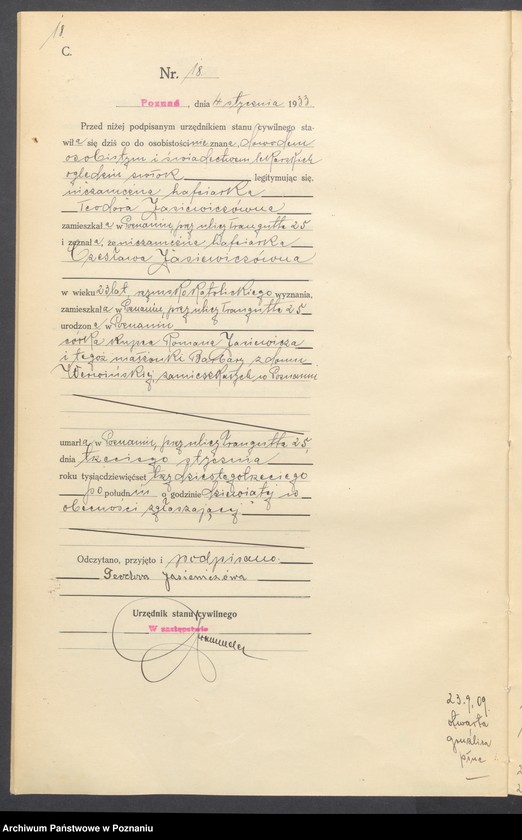 18
C.
Nr. 18.
Poznań, dnia 4 stycznia 1933
Przed niżej podpisanym urzędnikiem stanu cywilnego sta-
wiła się dziś co do osobistości nieznana, dowodem
osobistym i świadectwem lekarskich
oględzin zwłok legitymując się.
niezamężna hafciarka
Teodora Jasiewiczówna
zamieszkała w Poznaniu, przy ulicy Traugutta 25
i zeznała, że niezamężna hafciarka
Czesława Jasiewiczówna
w wieku 23 lat, rzymsko katolickiego wyznania,
zamieszkała w Poznaniu, przy ulicy Traugutta 25
urodzona w Poznaniu
córka kupca Romana Jasiewicza
i tegoż małżonki Barbary z domu
zamieszkałych w Poznaniu
umarła w Poznaniu, przy ulicy Traugutta 25,
dnia trzeciego stycznia
roku tysiącdziewięćset trzydziestego trzeciego
po południu o godzinie dziewiątej w
obecności zgłaszającej
Odczytano, przyjęto i podpisano
Teodora Jasiewiczówna
Urzędnik stanu cywilnego
W zastępstwie
23.9.09
otwarta
gruźlica
płuc
Archiwum Państwowe w Poznaniu